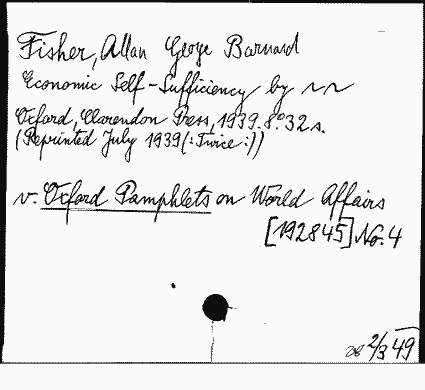 Fisher, Allan George Barnard
Economic Self-Sufficiency by ~~
Oxford, Clarendon Press, 1939. 8° 32 s.
(Reprinted July 1939 (: Twice :))
v. Oxford Pamphlets on World Affairs
[192845] No. 4
2/3 49